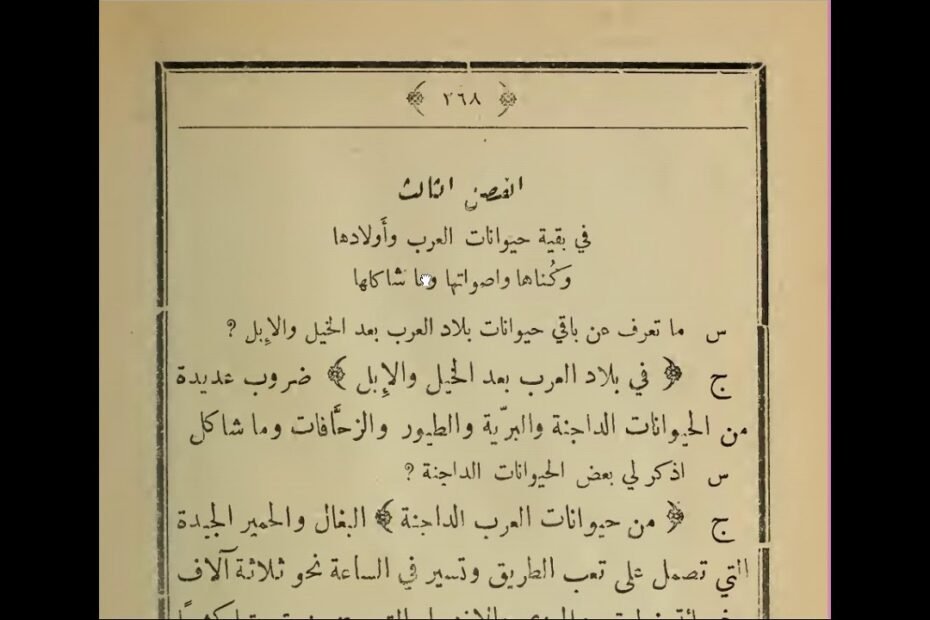 ٢٦٨
الفصل الثالث
في بقية حيوانات العرب وأَولادها
وكُناها واصواتها وما شاكلها
س ما تعرف عن باقي حيوانات بلاد العرب بعد الخيل والإِبل ؟
ج ﴿ في بلاد العرب بعد الخيل والإِبل ﴾ ضروب عديدة
من الحيوانات الداجنة والبرّية والطيور والزحَّافات وما شاكل
س اذكر لي بعض الحيوانات الداجنة ؟
ج ﴿ من حيوانات العرب الداجنة ﴾ البغال والحمير الجيدة
التي تصمل على تعب الطريق وتسير في الساعة نحو ثلاثة آلاف